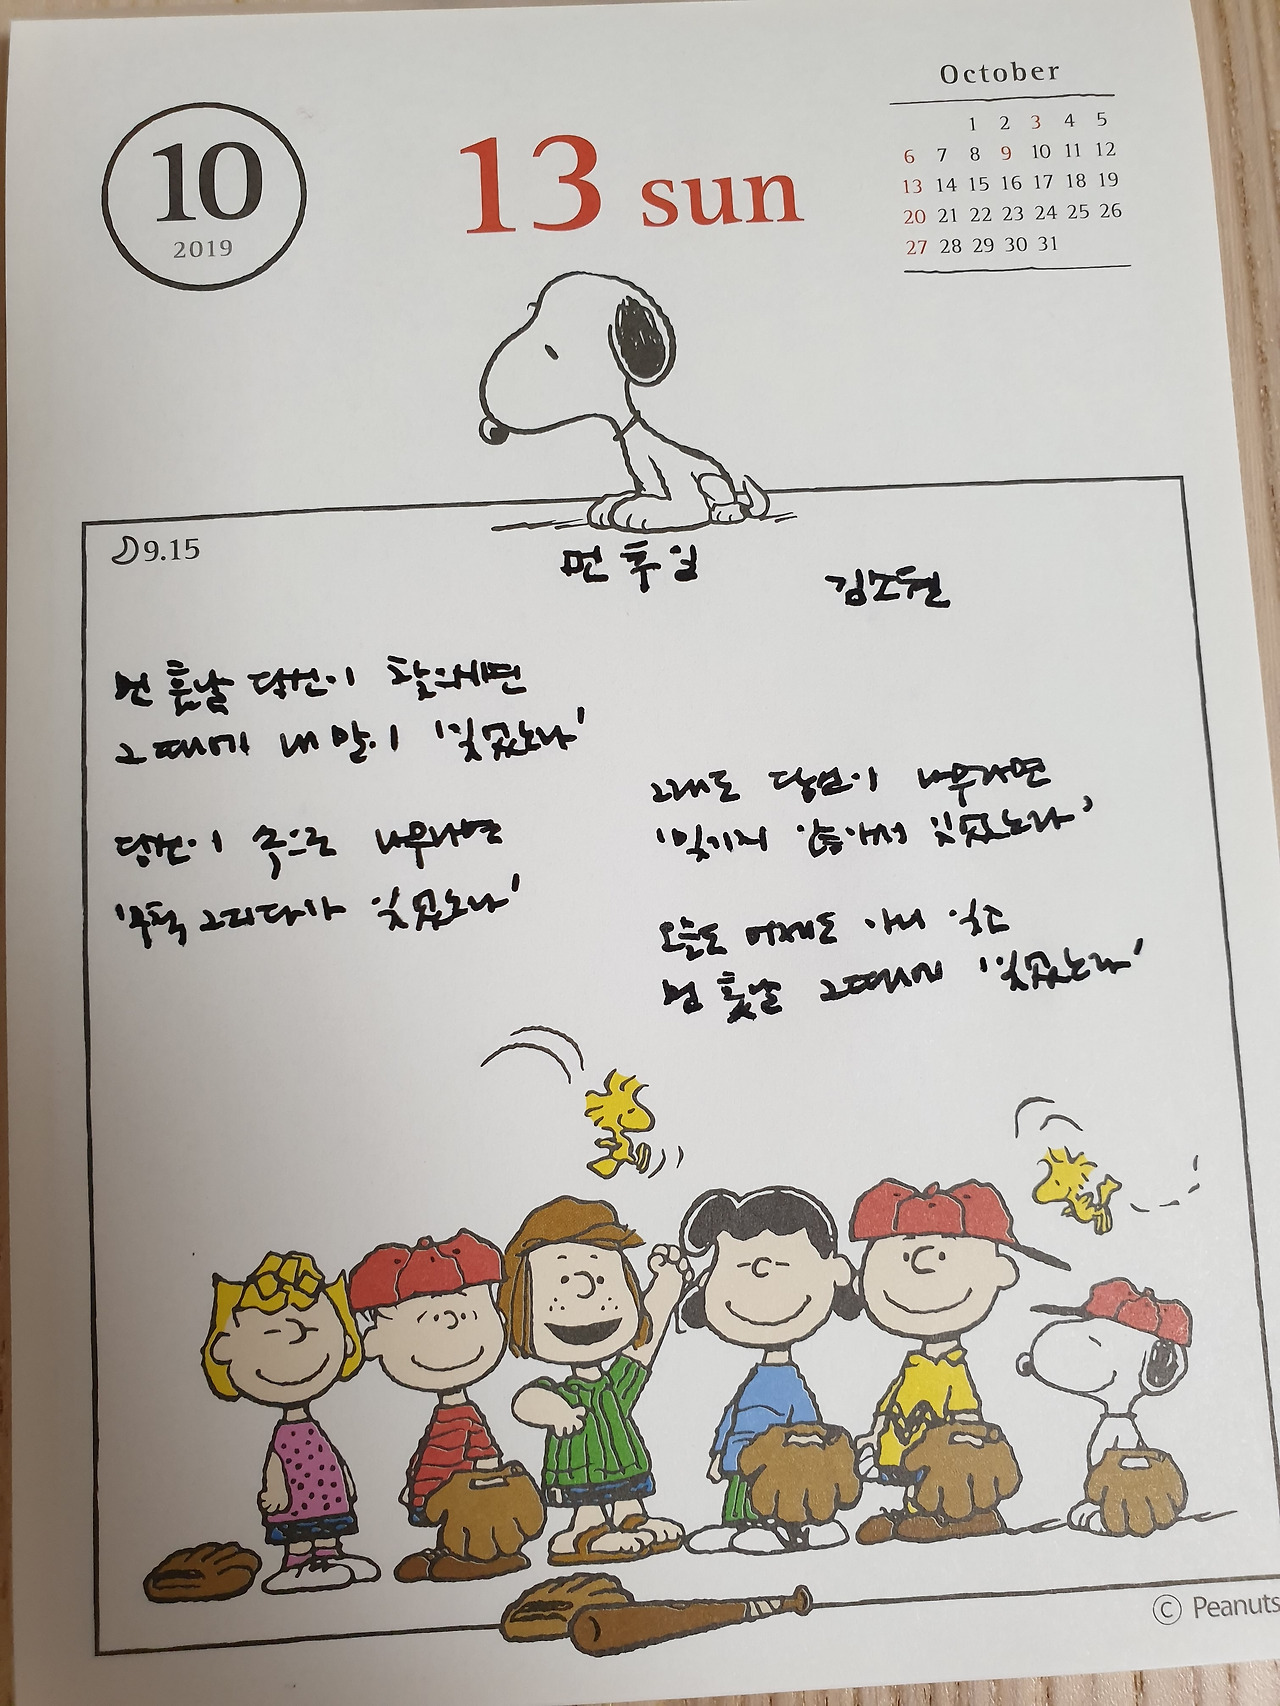 10
2019
13 sun
October
1 2 3 4 5
6 7 8 9 10 11 12
13 14 15 16 17 18 19
20 21 22 23 24 25 26
27 28 29 30 31
9.15
먼 후일
김소월
먼 훗날 당신이 찾으시면
그때에 내 말이 '잊었노라'
당신이 속으로 나무라면
'무척 그리다가 잊었노라'
그래도 당신이 나무라면
'믿기지 않아서 잊었노라'
오늘도 어제도 아니 잊고
먼 훗날 그때에 '잊었노라'
© Peanuts